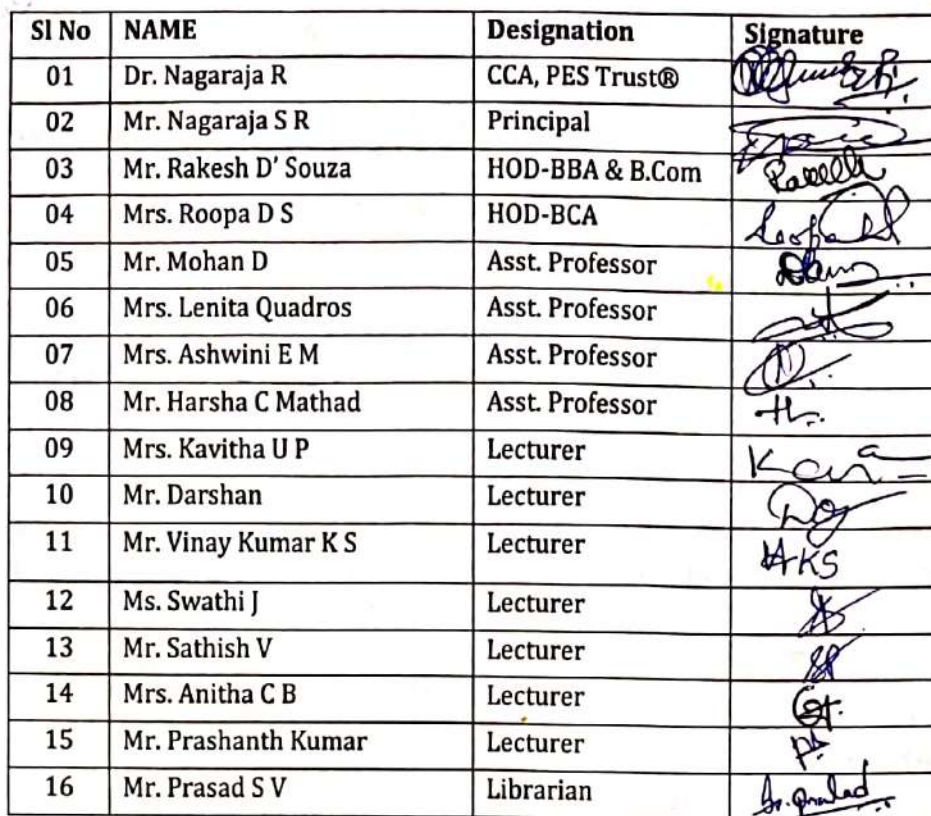 Sl No NAME Designation Signature
01 Dr. Nagaraja R CCA, PES Trust®
02 Mr. Nagaraja S R Principal
03 Mr. Rakesh D' Souza HOD-BBA & B.Com
04 Mrs. Roopa D S HOD-BCA
05 Mr. Mohan D Asst. Professor
06 Mrs. Lenita Quadros Asst. Professor
07 Mrs. Ashwini E M Asst. Professor
08 Mr. Harsha C Mathad Asst. Professor
09 Mrs. Kavitha U P Lecturer
10 Mr. Darshan Lecturer
11 Mr. Vinay Kumar K S Lecturer
12 Ms. Swathi J Lecturer
13 Mr. Sathish V Lecturer
14 Mrs. Anitha C B Lecturer
15 Mr. Prashanth Kumar Lecturer
16 Mr. Prasad S V Librarian